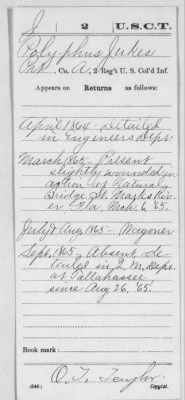 J 2 U.S.C.T.
Polyphus Jerkes
Pvt, Co. A, 2 Reg't U. S. Col'd Inf.
Appears on Returns as follows:
April 1864 - detailed
in Engineers Dept.
March/65 - Present
slightly wounded in
action at Natural
Bridge St. Marks Riv-
er Fla. Mch. 6, 65.
July & Aug 1865 - Wagoner
Sept. 1865 - Absent de-
tailed in Q. M. Dept.
at Tallahassee
since Aug 26, '65.
Book mark:
(646) Copyist.